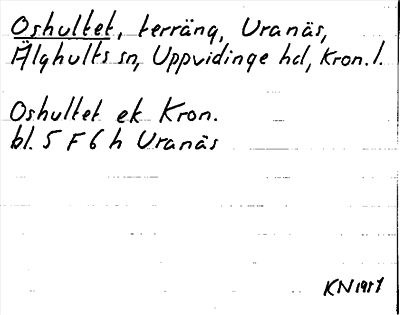 Oshultet, terräng, Uranäs,
Älghults sn, Uppvidinge hd, Kron. l.
Oshultet ek Kron.
bl. 5 F 6 h Uranäs
KN 1987